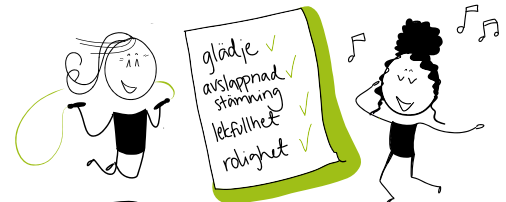 glädje
avslappnad
stämning
lekfullhet
rolighet